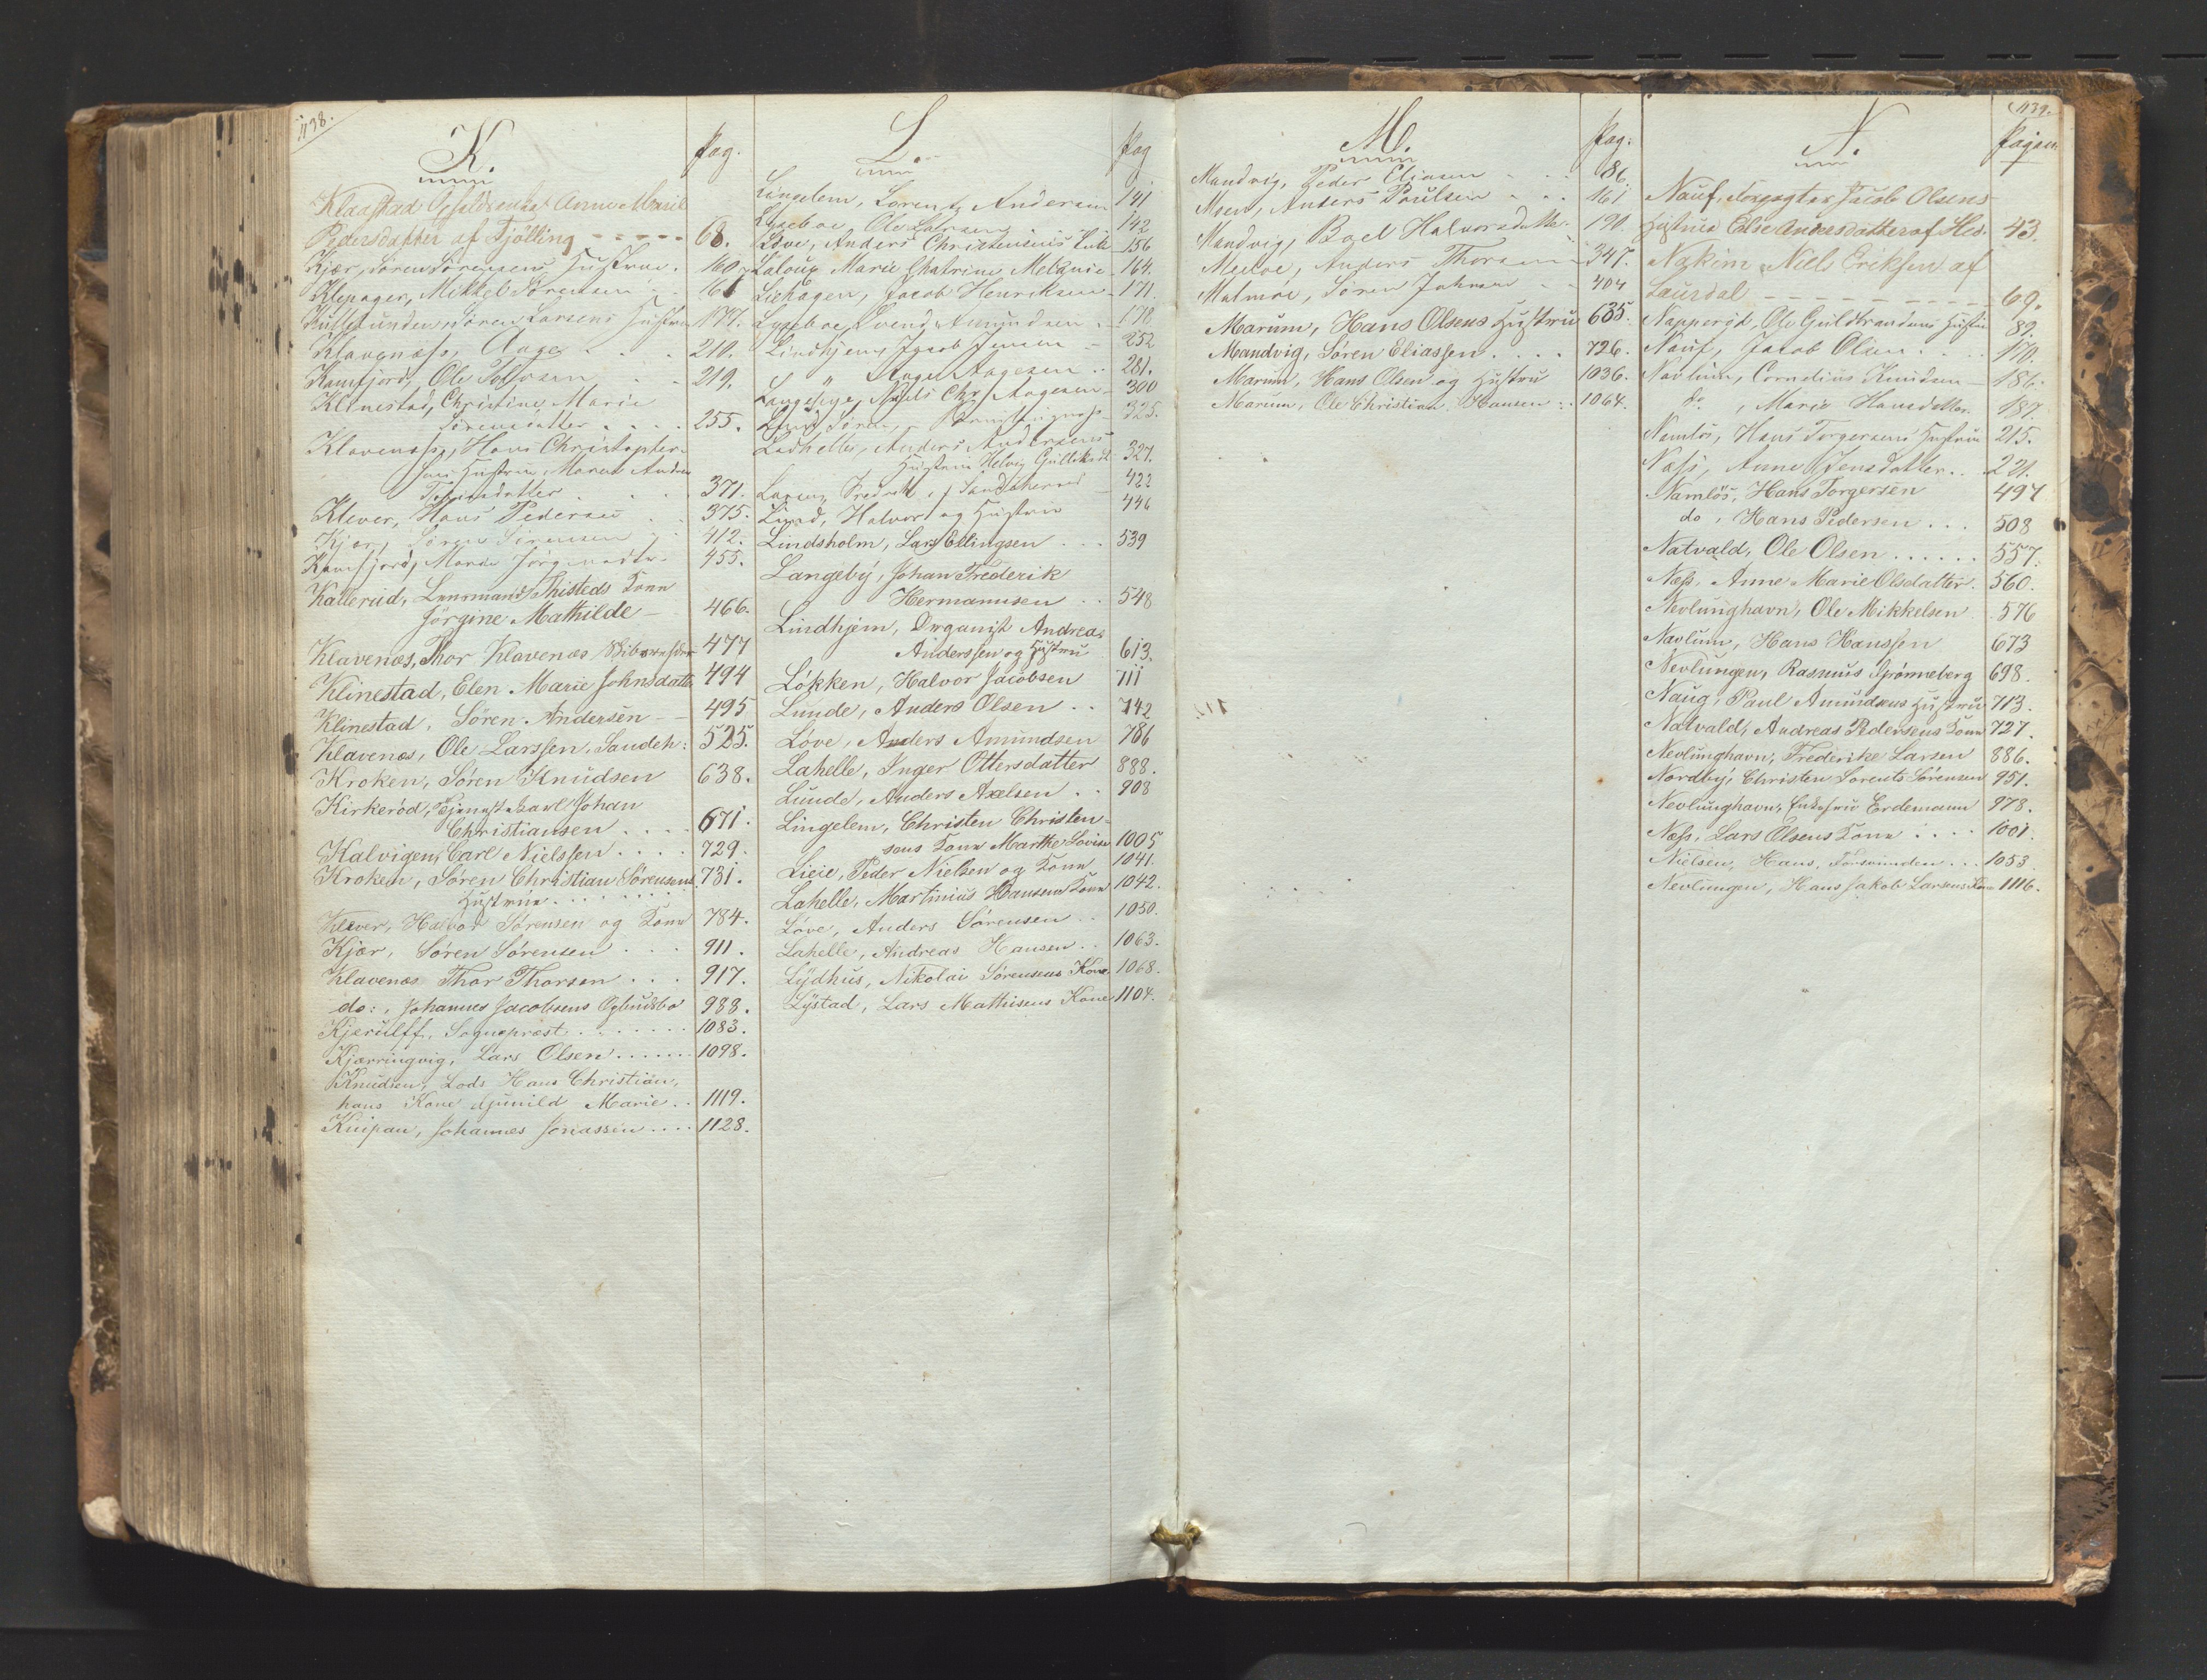 1138.
K.
Pag.
Klaastad Anne Marie
Pedersdatter af Tjölling 68.
Kjær, Sören Sörensens Hustrue. 160
Klepager, Mikkel Sörensen 161
Sören Larsens Hustru 177.
Klavenæss, Aage 210.
Kamfjord, Ole 219.
Klinestad, Christine Marie
Sörensdatter 255.
Klavenæss, Hans Christopher
Hustrue Maren
371.
Klever, Hans Pedersen 375.
Kjær, Sören Sörensen 412.
Kamfjord, Maren 455.
Kallerud, Lensmand Thisteds Kone
Jörgine Mathilde 466.
Klavenæs, Thor Klavenæs 477
Klinestad, Elen Marie Johnsdatter 494
Klinestad, Sören Andersen 495
Klavenæs, Ole Larssen, Sandeh: 525.
Kroken, Sören Knudsen 638.
Kirkeröd, Johan
Christiansen 671.
Kalvigen, Carl Nielssen 729.
Kroken, Sören Christian Sörensens 731.
Hustrue
Klever, Halvor Sörensen og Kone 784.
Kjær, Sören Sörensen 911.
Klavenæs Thor Thorsen 917.
do:, Johannes Jacobsens 988.
Kjerulff, Sognepræst 1083.
Kjærringvig, Lars Olsen 1098.
Knudsen, Lods Hans Christian,
hans Kone Gunild Marie 1119.
Johannes 1128.
L.
Pag
Lingelem, Lorentz Andersen 141
Lyseboe, Ole Larsen 142
Löve, Anders Christensens 156
Marie Chatrine 164.
Liehagen, Jacob Henriksen 171.
Lyseboe, Svend Amundsen 178
Lindhjem, Jacob Jensen 252
" Aage Aagesen 281.
Niels Chr. Aagesen 300
Lund, Sören, 325.
Ladhelle, Anders Andersens
Hustrue Helvig 327.
Larsen, Fredrik af Sandeherred 422
Lund, Halvor og Hustrue 446
Lindsholm, Lars Ellingsen 539
Langeby, Johan Frederik
Hermannsen 548
Lindhjem, Organist Andreas
Anderssen og Hustru 613.
Lökken, Halvor Jacobsen 711
Lunde, Anders Olsen 742
Löve, Anders Amundsen 786
Lahelle, Inger Ottersdatter 888.
Lunde, Anders Axelsen 908
Lingelem, Christen Christen-
sens Kone Marthe Lovise 1005
Lieie, Peder Nielsen og Kone 1041.
Lahelle, Martinius Hansens Kone 1042.
Löve, Anders Sörensen 1050.
Lahelle, Andreas Hansen 1063.
Lydhus, Nikolai Sörensens Kone 1068.
Lystad, Lars Mathisens Kone 1104.
M.
Pag:
Mandvig, Peder Eliasen 86.
Moen, Anders Poulsen 161
Mandvig, Boel Halvorsdatter 190.
Anders Thorsen 347.
Malmöe, Sören Johnsen 404
Marum, Hans Olsens Hustru 635.
Mandvig, Sören Eliassen 726.
Marum, Hans Olsen og Hustru 1036.
Marum, Ole Christian Hansen 1064.
1139.
N.
Pagina
Nauf, Jacob Olsens
Hustrue Else Andersdatter af Hed. 43.
Niels Eriksen af
Laurdal 69.
Napperöd, Ole Guldbrandsens Hustru 89.
Nauf, Jacob Olsen 170.
Navlum, Cornelius Knudsen 186.
do, Marie Hansdatter 187.
Namlös, Hans Torgersens Hustrue 215.
Næss, Anne Jensdatter 221.
Namlös, Hans Torgersen 497
do, Hans Pedersen 508
Natvald, Ole Olsen 557.
Næss, Anne Marie Olsdatter. 560.
Nevlunghavn, Ole Mikkelsen 576
Navlum, Hans Hanssen 673
Nevlungen, Rasmus Grönneberg 698.
Naug, Paul Amundsens Hustrue 713.
Natvald, Andreas Pedersens Kone 727.
Nevlunghavn, Frederike Larsen 886.
Nordby, Christen Lorents Sörensen 951.
Nevlunghavn, Enkefrue Erdemann 978.
Næss, Lars Olsens Kone 1001.
Nielsen, Hans, Forsvunden 1053
Nevlungen, Hans Jakob Larsens Kone 1116.